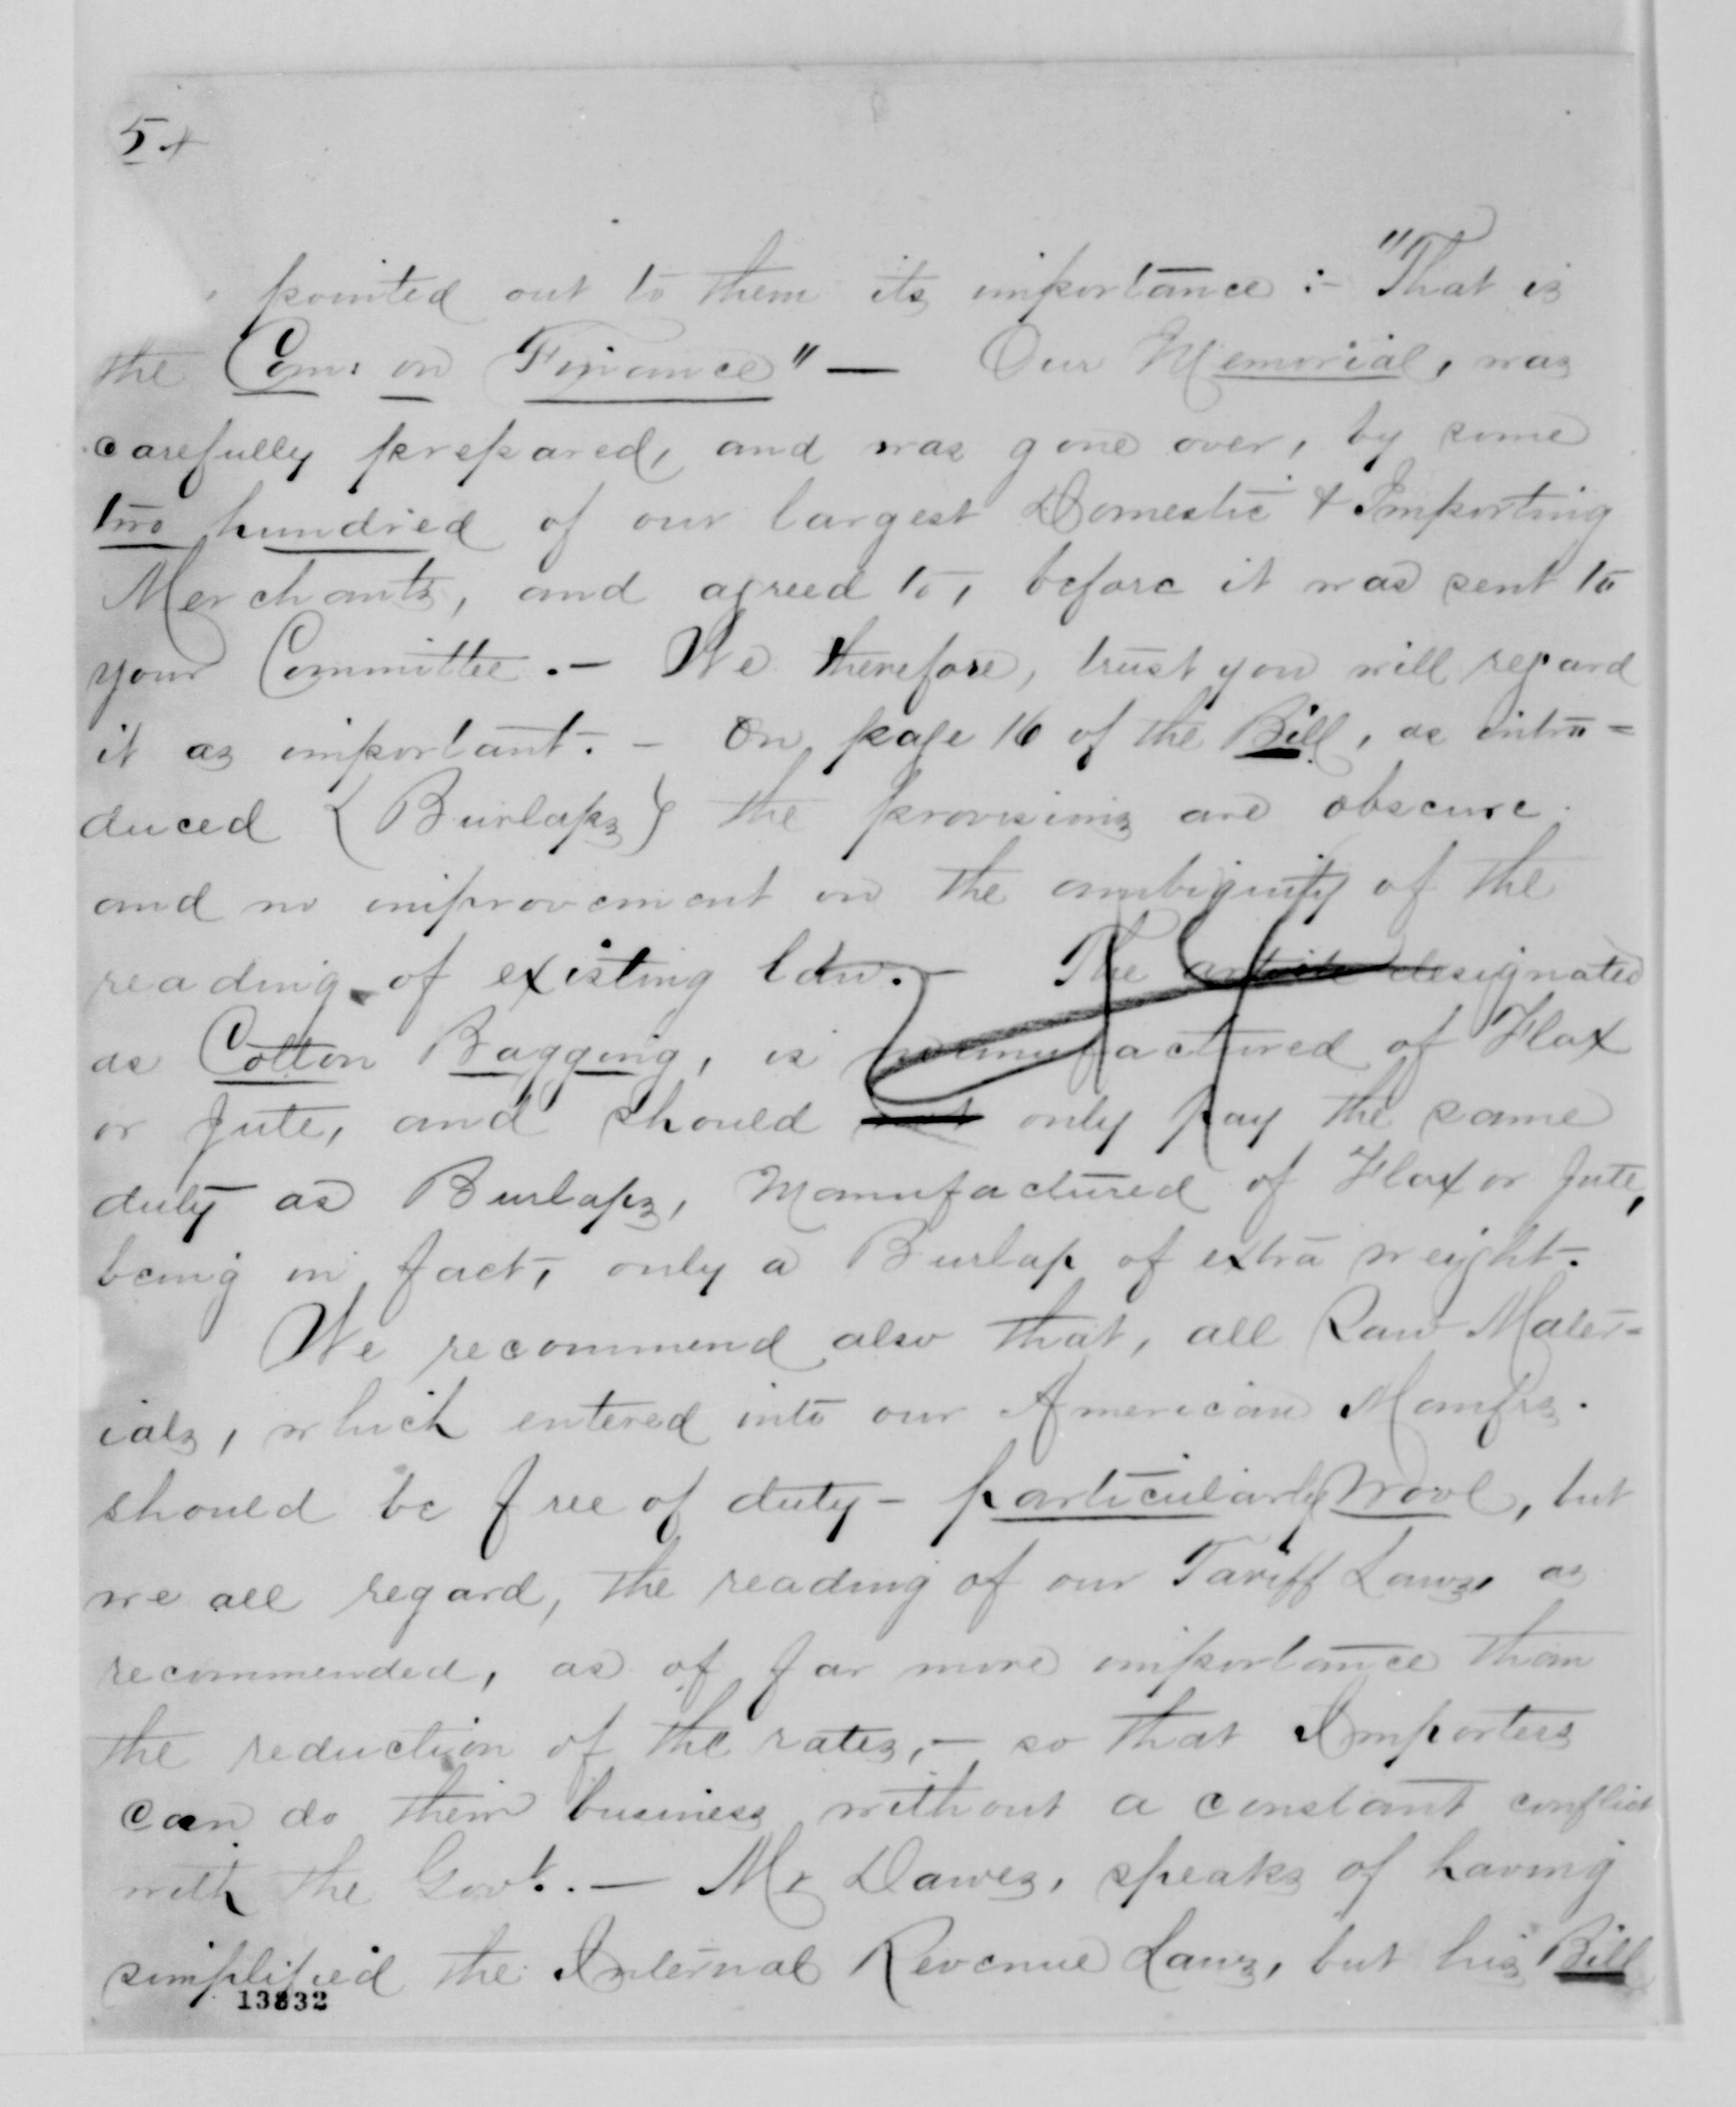 5 +
pointed out to them its importance :- "That is
the Com: on Finance" — Our Memorial, was
carefully prepared, and was gone over, by some
two hundred of our largest Domestic & Importing
Merchants, and agreed to, before it was sent to
your Committee. - We therefore, trust you will regard
it as important. - On page 16 of the Bill, as intro=
duced {Burlaps} the provisions are obscure.
and no improvement on the ambiguity of the
reading of existing law. - The article designated
as Cotton Bagging, is manufactured of Flax
or Jute, and should only pay the same
duty as Burlaps, Manufactured of Flax or Jute,
being in fact, only a Burlap of extra weight.
We recommend also that, all Raw Mater=
ials, which entered into our American Manfrs.
should be free of duty - particularly Wool, but
we all regard, the reading of our Tariff Laws, as
recommended, as of far more importance than
the reduction of the rates, - so that Importers
can do their business without a constant conflict
with the Govt. - Mr Dawes, speaks of having
simplified the Internal Revenue Laws, but his Bill
13832